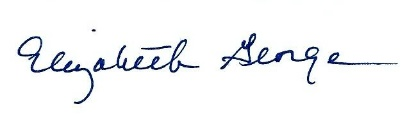 Elizabeth George